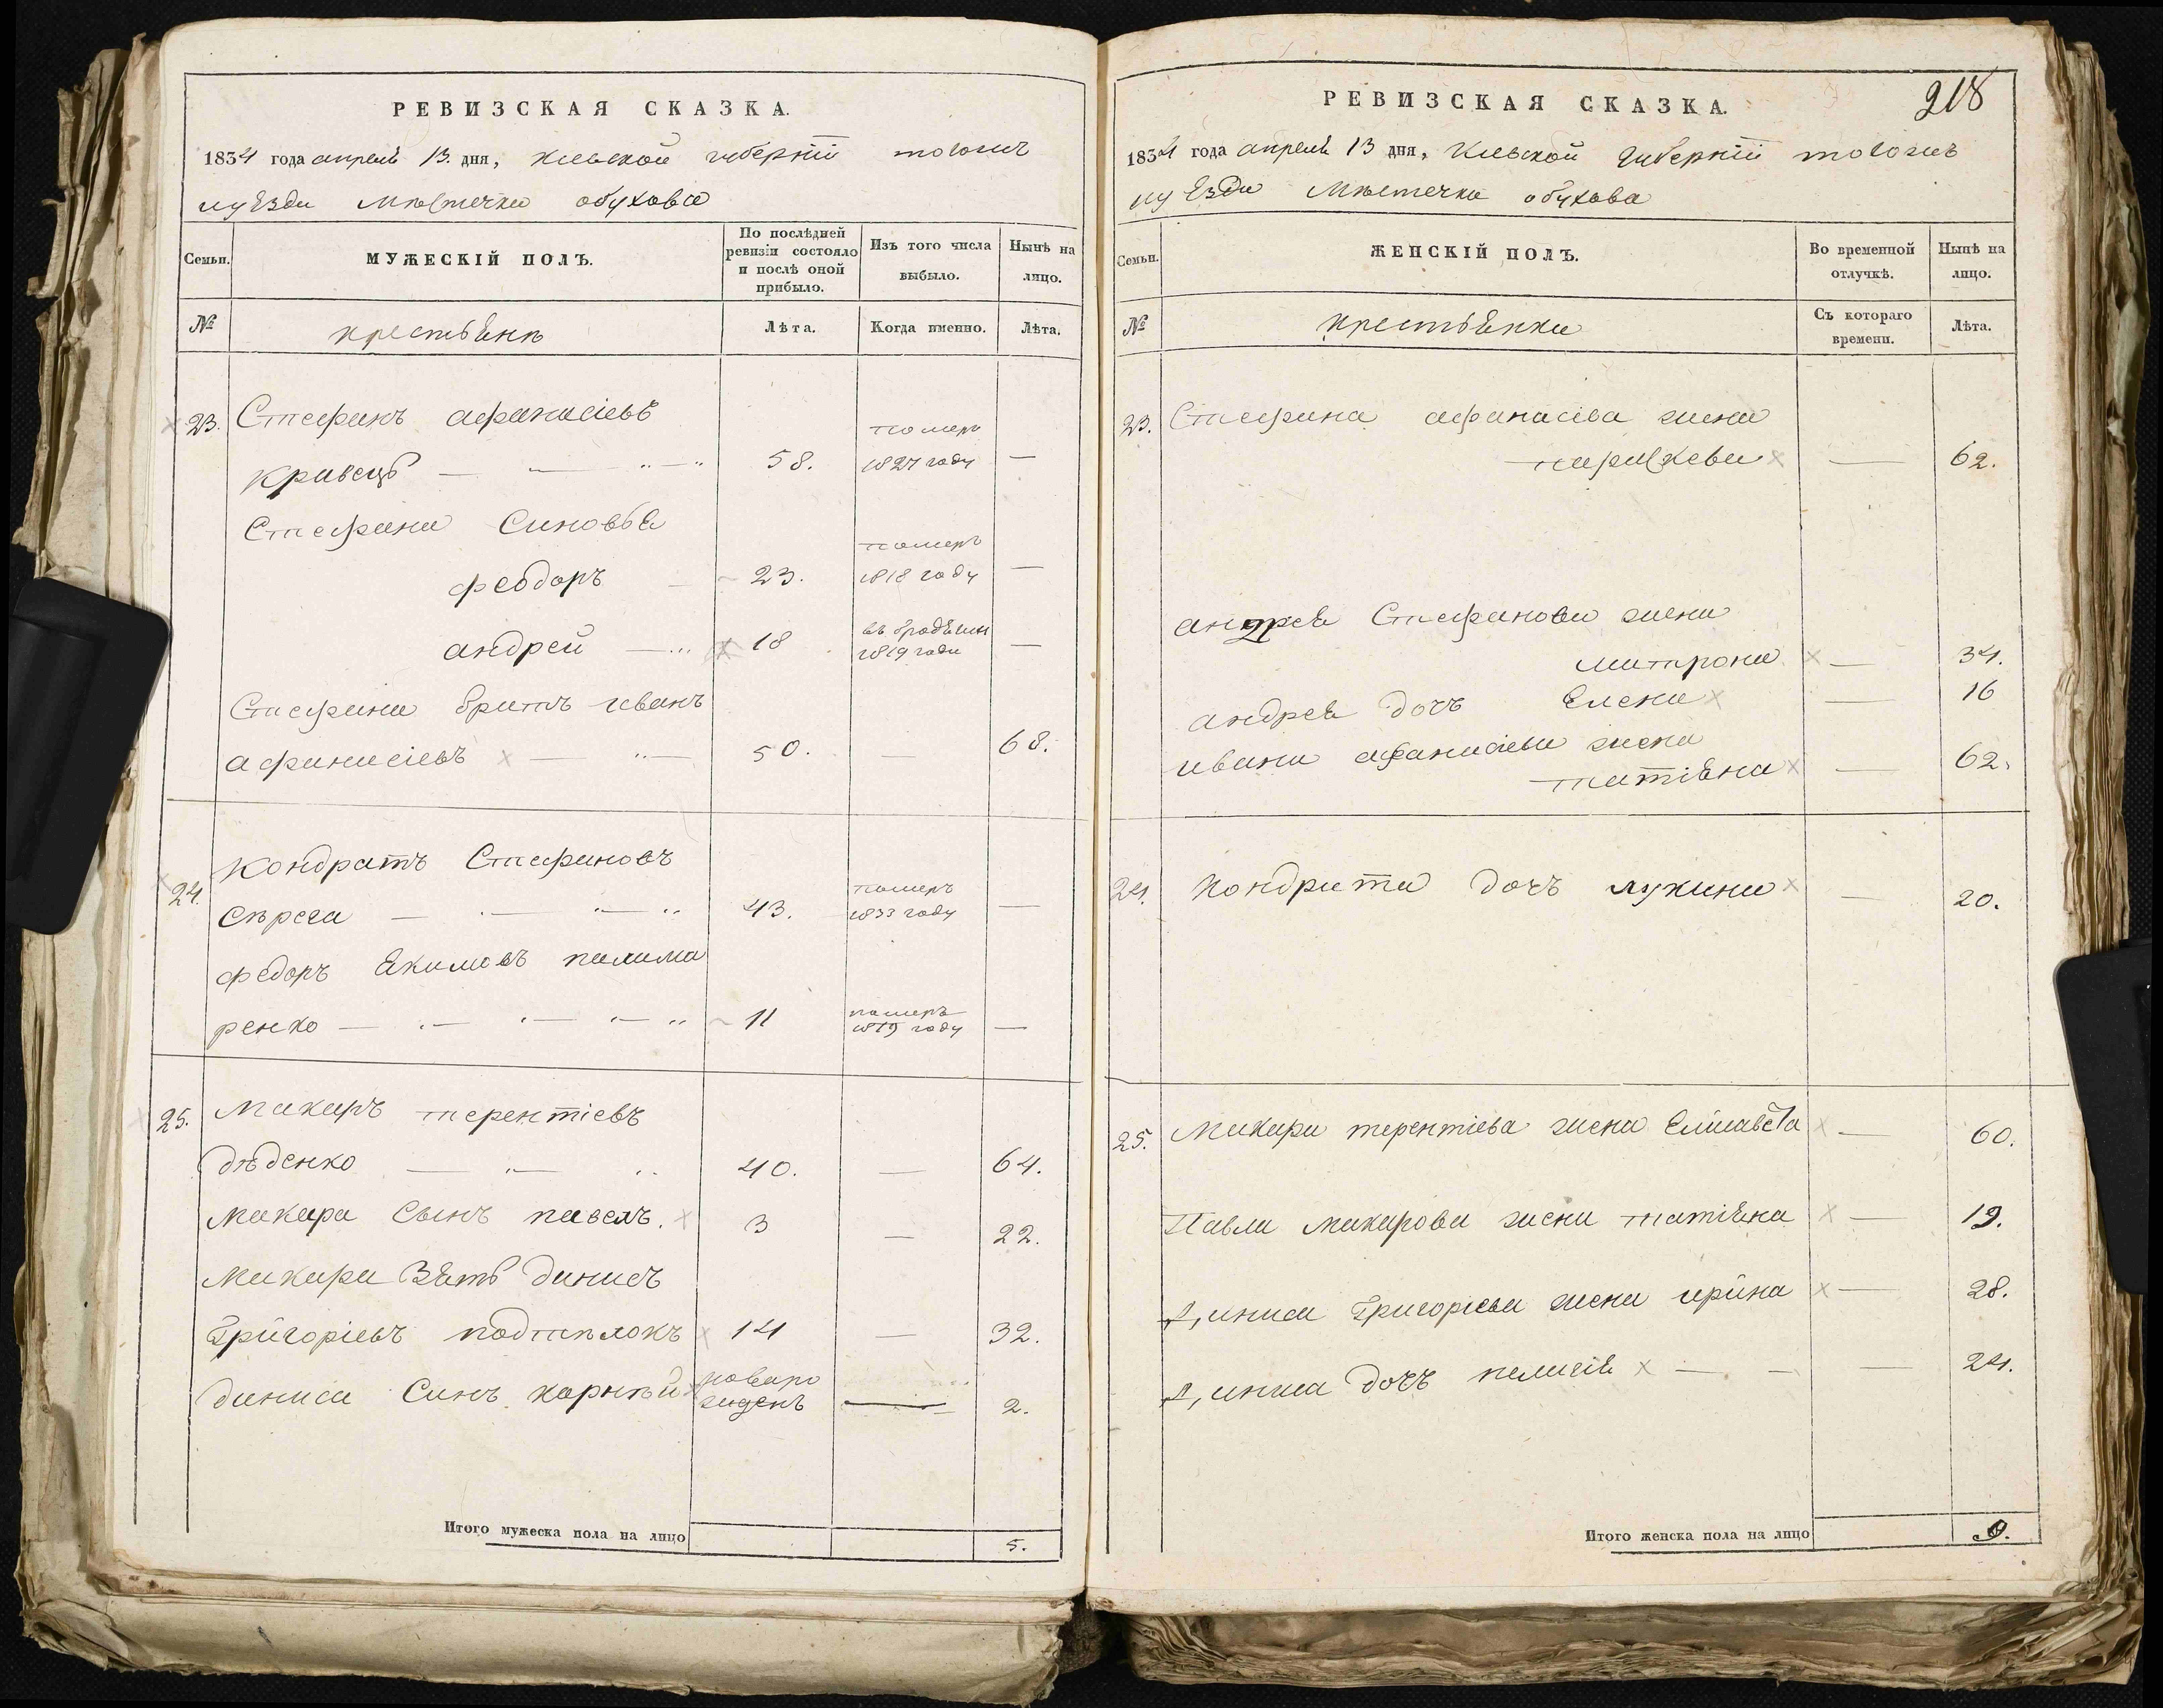 РЕВИЗСКАЯ СКАЗКА.
1834 года апреля 13. дня, Киевской губернїи тогожъ
уѣзда Мѣстечка обухова
Семьи.
МУЖЕСКІЙ ПОЛЪ.
По послѣдней ревизіи состояло и послѣ оной прибыло.
Изъ того числа выбыло.
Нынѣ на лицо.
№
крестьяне
Лѣта.
Когда именно.
Лѣта.
23. Стефанъ афанасіевъ
кравецъ 58. померъ 1827 году —
Стефана Синовья
феодоръ 23. померъ 1818 году —
андрей 18 въ бродяги 1819 года —
Стефана братъ иванъ
афанасіевъ 50. — 68.
24. Кондратъ Стефановъ
Сѣрега 43. померъ 1833 году —
федоръ Якимовъ палама
ренко 11 померъ 1819 году —
25. Макаръ терентіевъ
дѣденко 40. — 64.
Макара Сынъ павелъ. 3 — 22.
Макара Зять данисъ
Григоріевъ подтѣлокъ 14 — 32.
даниса Синъ корнѣй новаро жденъ — 2.
Итого мужеска пола на лицо 5.
218
РЕВИЗСКАЯ СКАЗКА.
1834 года апреля 13 дня, Киевской Губернїи тогожъ
уѣзда Мѣстечка обухова
Семьи.
ЖЕНСКІЙ ПОЛЪ.
Во временной отлучкѣ.
Нынѣ на лицо.
№
крестьянки
Съ котораго времени.
Лѣта.
23. Стефана афанасіва жена
параскева — 62.
андрея Стефанова жена
матрона — 34.
андрея дочъ Елена — 16
ивана афанасіева жена
татіяна — 62.
24. Кондрата дочъ лукина — 20.
25. Макара терентіева жена Елисавета — 60.
Павла Макарова жена татіяна — 19.
Даниса Григоріева жена ирина — 28.
Даниса дочъ пелагія — 24.
Итого женска пола на лицо 9.